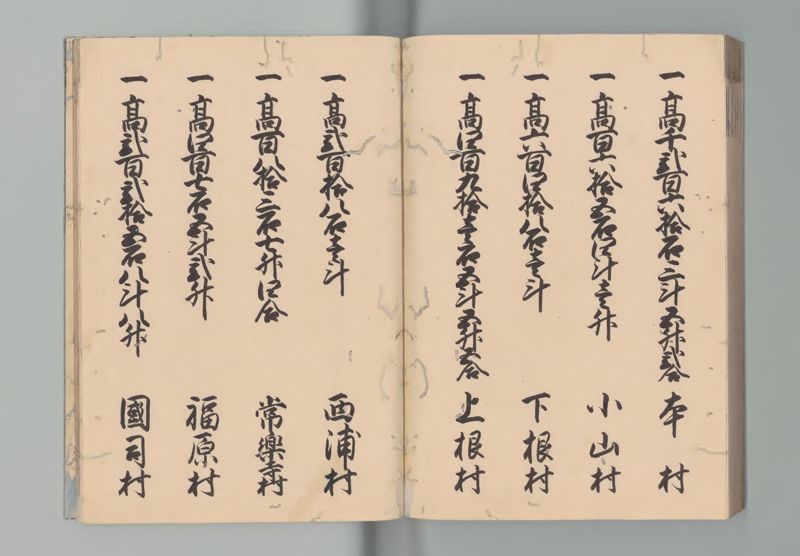 一高千弐百六拾石三斗五升弐合 本村
一高百六拾五石四斗壱升 小山村
一高六百四拾八石壱斗 下根村
一高四百九拾壱石五斗五升五合 上根村
一高弐百拾八石壱斗 西浦村
一高百八拾三石七升四合 常樂寺村
一高四百七石五斗弐升 福原村
一高弐百弐拾五石八斗八升 國司村